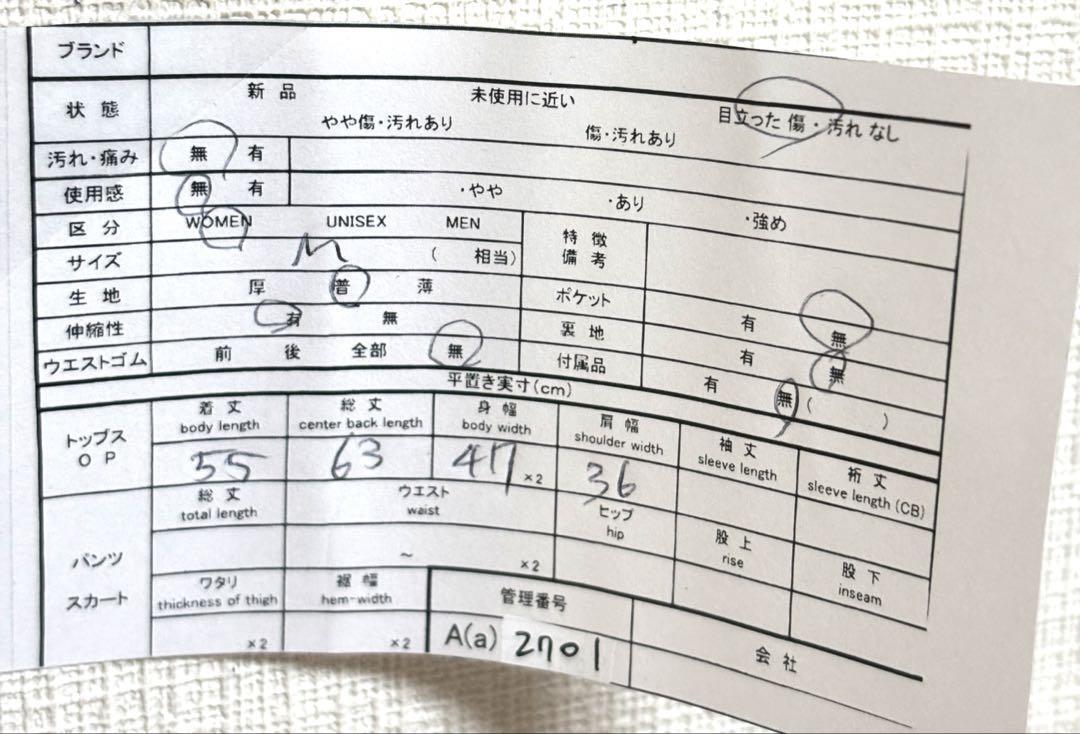 ブランド
状態 新品 未使用に近い 目立った傷・汚れなし
やや傷・汚れあり 傷・汚れあり
汚れ・痛み 無 有
使用感 無 有 ・やや ・あり ・強め
区分 WOMEN UNISEX MEN 特徴備考
サイズ M ( 相当)
生地 厚 普 薄 ポケット 有 無
伸縮性 有 無 裏地 有 無
ウエストゴム 前 後 全部 無 付属品 有 無 ( )
平置き実寸(cm)
トップス OP
着丈 総丈 身幅 肩幅 袖丈 裄丈
body length center back length body width shoulder width sleeve length sleeve length (CB)
55 63 47 ×2 36
パンツ スカート
総丈 ウエスト ヒップ 股上 股下
total length waist hip rise inseam
~ ×2
ワタリ 裾幅 管理番号
thickness of thigh hem-width
×2 ×2 A(a) 2701 会社